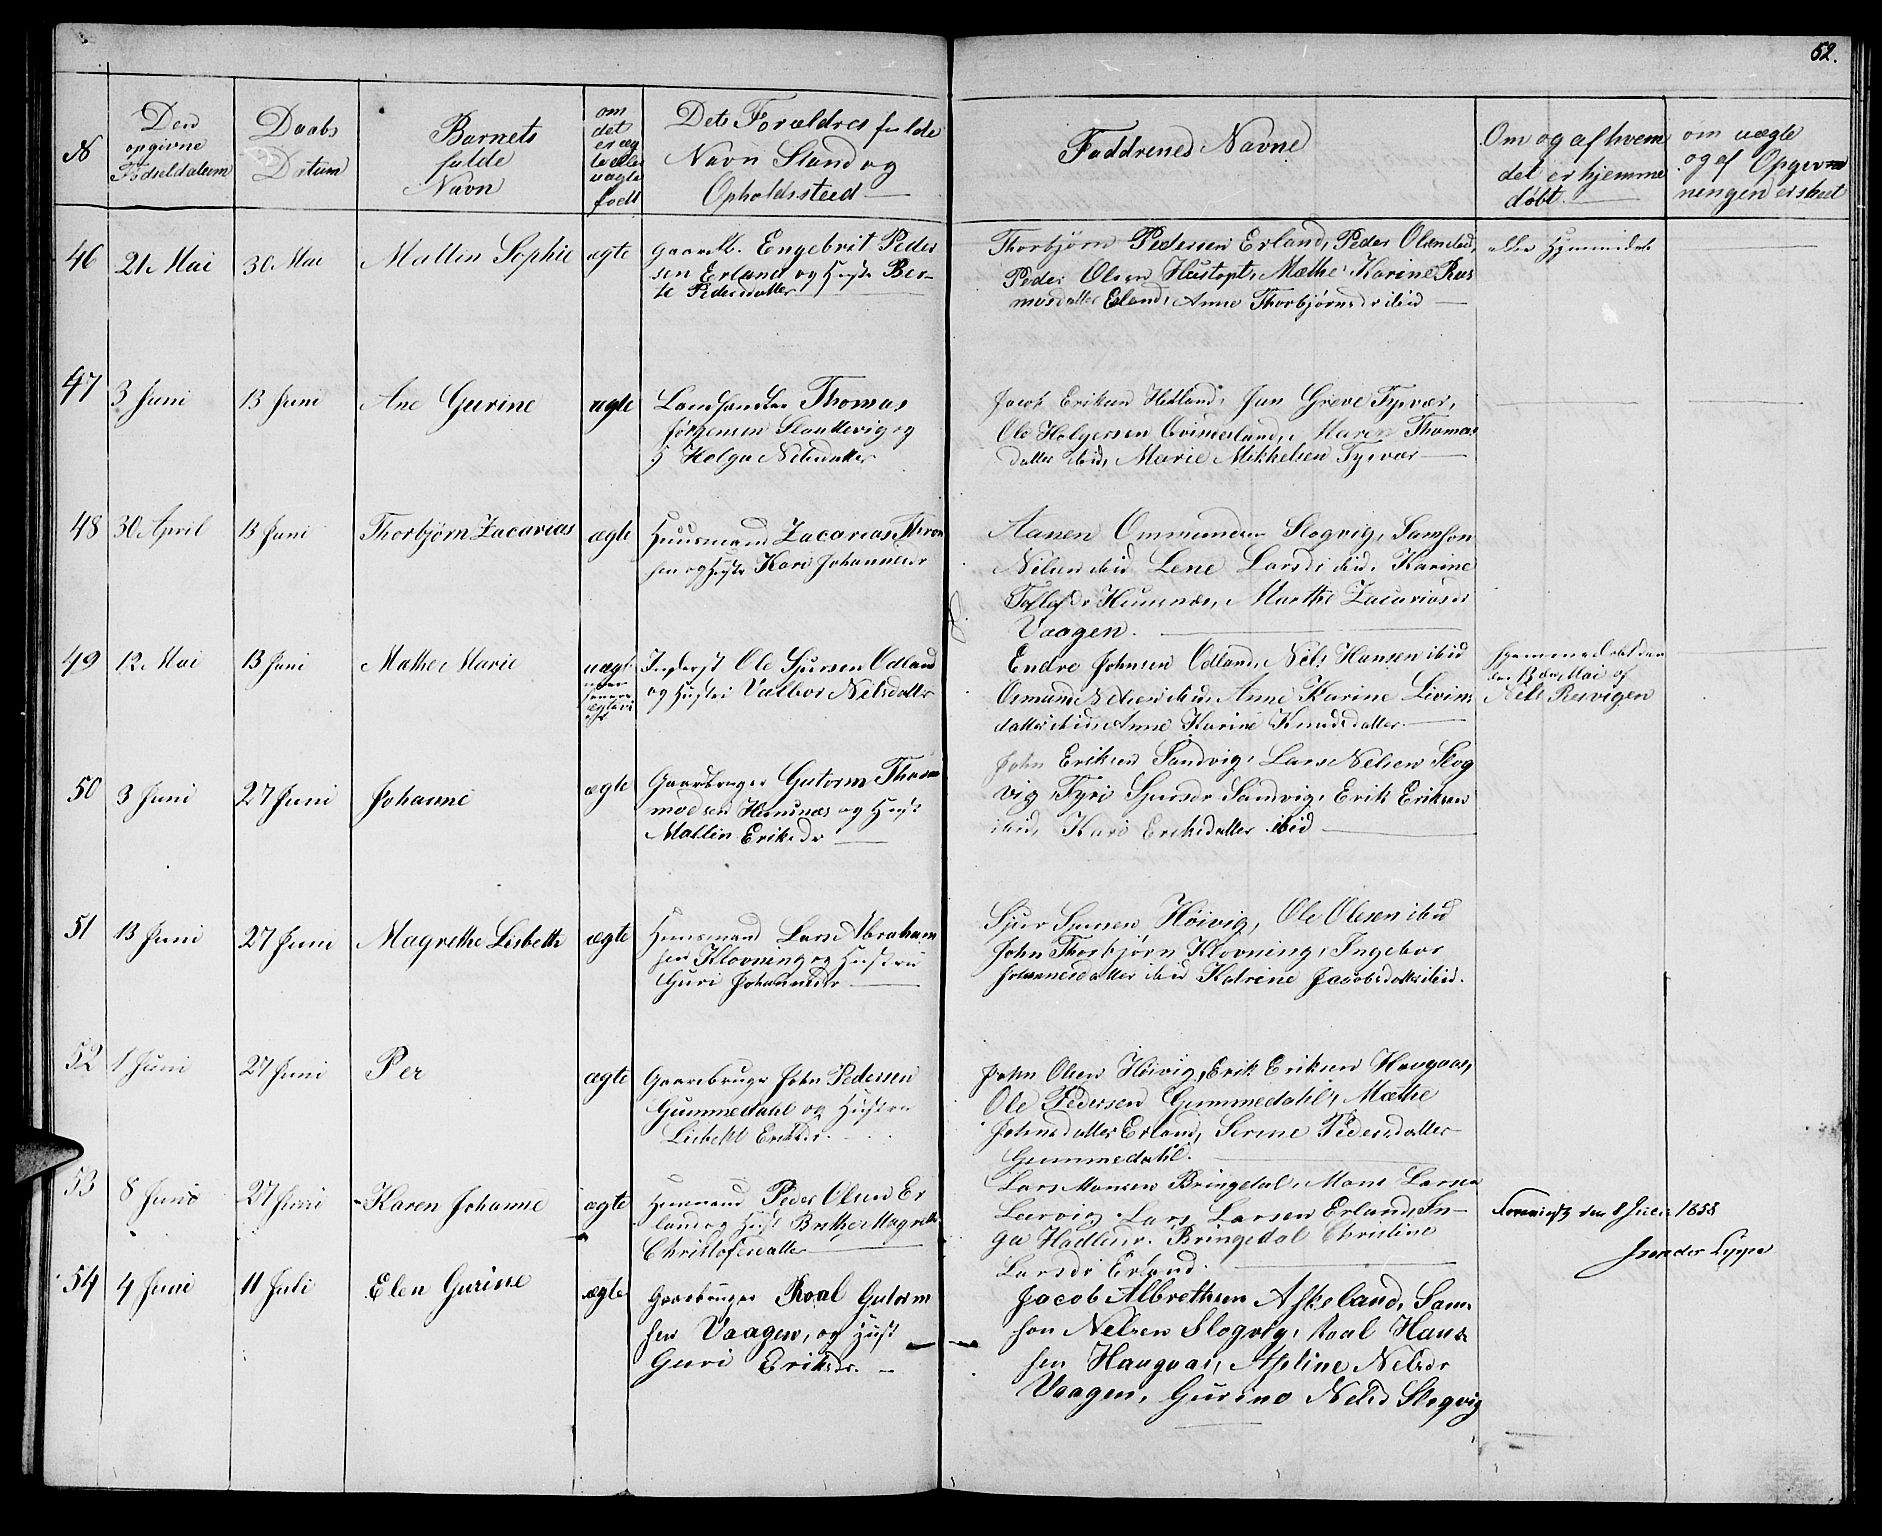 52.
N
Den opgivne Fødseldatum
Daabs Datum
Barnets fulde Navn
om det er æg te eller uægte født
Dets Forældres fulde Navn Stand og Opholdssteed
Faddrenes Navne
Om og af hvem det er hjemme døbt.
om uægte og af Opgivningen er skeet
46 21 Mai 30 Mai Mallin Sophie ægte
Gaardb. Engebrit Peder
sen Erland og Hustr Ber-
te Pedersdatter
Thorbjørn Pedersen Erland, Peder
Peder Olsen Hustoft, Mæthe Karine Ras
mosdatter Erland, Anne Thorbjørnsdr ibid
47 3 Juni 13 Juni Ane Gurine ægte
Landhandler Thomas
Jørgensen Slottevig og
H Helga Nilsdatter
Jacob Eriksen Hetland, Jan Greve Tysvær,
Ole Holgersen Maren Thomas
datter ibid, Marie Mikkelsen Tysvær
48 30 April 13 Juni Thorbjørn Zacarias ægte
Huusmand Zacarias Thron
sen og Hustr Kari Johannesdr
Aanen Ommundsen Slogvig, Samson
Nilsen ibid Lene Larsdr ibid, Karine
Toflefsdr Hunnæs, Marthe Zacariasdr
Vaagen.
49 12 Mai 13 Juni Mathe Marie uægt
Inderst Ole Sjursen Odland
og Hustru Valbor Nilsdatter
Endre Johnsen Odland, Nils Hansen ibid
Osmund Nilsen ibid, Anne Karine Livins
datter ibid, Anne Karine Knudsdatter
Hjemmedøbt den
13de Mai af
Nils Røsvigen
50 3 Juni 27 Juni Johanne ægte
Gaardbruger Gutorm Thor
modsen Hunnæs og Hust
Mallin Eriksdr
John Eriksen Sandvig, Lars Nilsen Slog
vig Tyri Sjursdr Sandvig, Erik Eriksen
ibid, Kari Eriksdatter ibid
51 13 Juni 27 Juni Magrethe Lisbeth ægte
Huusmand Lars Abraham
sen Klovning og Hustru
Guri Johannesdr
Sjur Høivig, Ole Olesen ibid
John Thorbjørn Klovning, Ingebor
Johannesdatter ibid Katrine Jacobsdatter ibid.
52 1 Juni 27 Juni Per ægte
Gaardbruger John Pedersen
Gummedahl og Hustru
Lisbeth Eriksdr.
John Olsen Høivig, Erik Eriksen Haugaas,
Ole Pedersen Gummedahl, Mæthe
Johnsdatter Erland, Serine Pedersdatter
Gummedahl.
53 8 Juni 27 Juni Karen Johanne ægte
Huusmand Peder Olsen Er
land og Hust Brithe Magrethe
Christofersdatter
Lars Monsen Bringedal, Mons Larsen
Leervig, Lars Larsen Erland, In-
ga Bringedal Christine
Larsdr Erland.
den 8 Juli 1858
54 4 Juni 11 Juli Elen Gurine ægte
Gaardbruger Roal Gutorm
sen Vaagen, og Hust
Guri Eriksdr.
Jacob Albrethsen Askeland, Sam
son Nilsen Slogvig, Roal Hans
sen Haugaas, Asline Nilsdr
Vaagen, Gurine Nilsd Slogvig